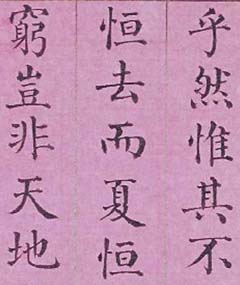 乎然惟其不
恒去而夏恒
窮豈非天地